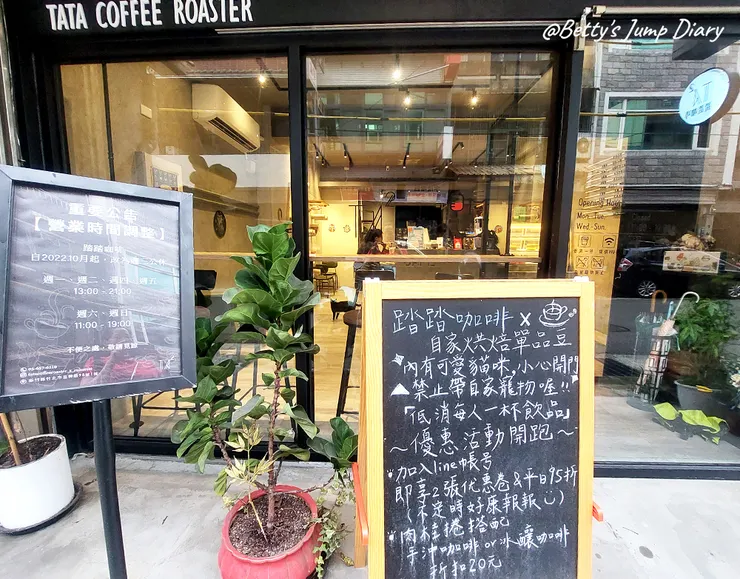 TATA COFFEE ROASTER
@Betty's Jump Diary
重要公告
【營業時間調整】
踏踏咖啡
自2022.10月起，
週一、週二、週四、週五
13:00 - 21:00
週六、週日
11:00 - 19:00
不便之處，敬請見諒
踏踏咖啡 x
自家烘焙單品豆
內有可愛貓咪,小心開門
禁止帶自家寵物喔!!
「低消每人一杯飲品」
～優惠活動開跑～
加入line帳号
即享2張优惠卷&平日95折
(不定時好康報報
肉桂捲搭配
手沖咖啡or冰釀咖啡
折扣20元
Opening Hour
Mon. Tue.
Wed-Sun.